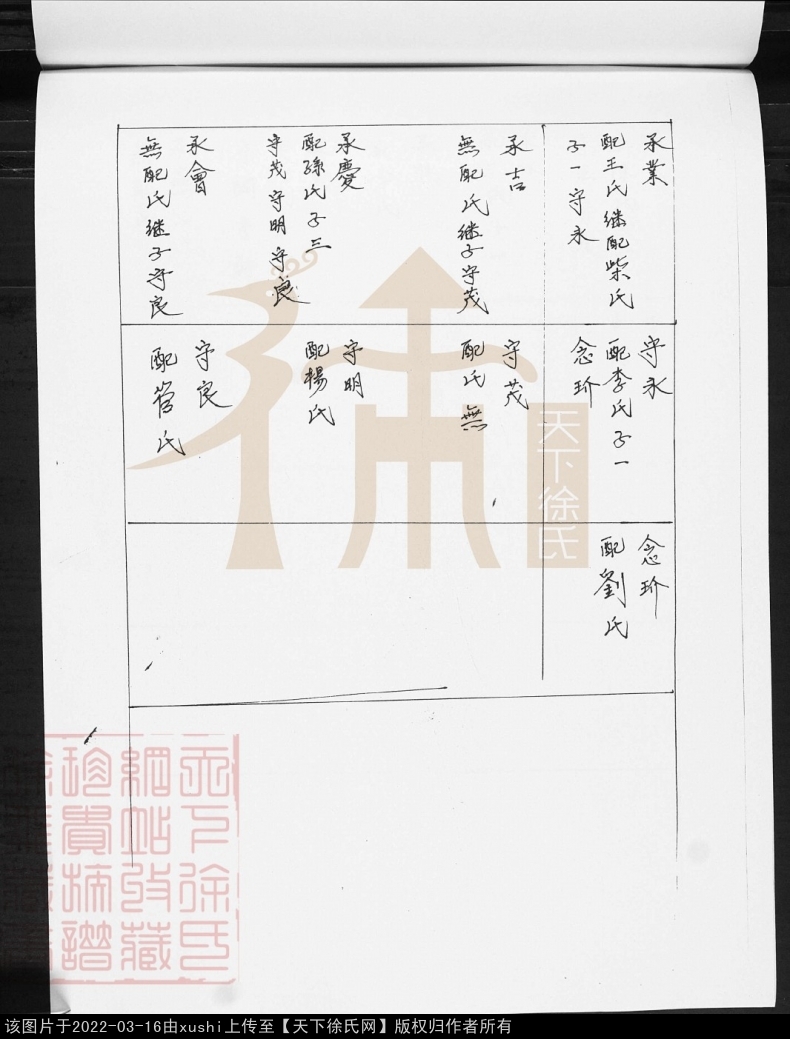 承業
配王氏继配柴氏
子一守永
承吉
無配氏继子守茂
承慶
配孫氏子三
守茂守明守良
承會
無配氏继子守良
守永
配李氏子一
念玠
守茂
配氏無
守明
配楊氏
守良
配管氏
念玠
配劉氏
天下徐氏
天下徐氏
網站收藏
珍貴族譜
该图片于2022-03-16由xushi上传至【天下徐氏网】版权归作者所有